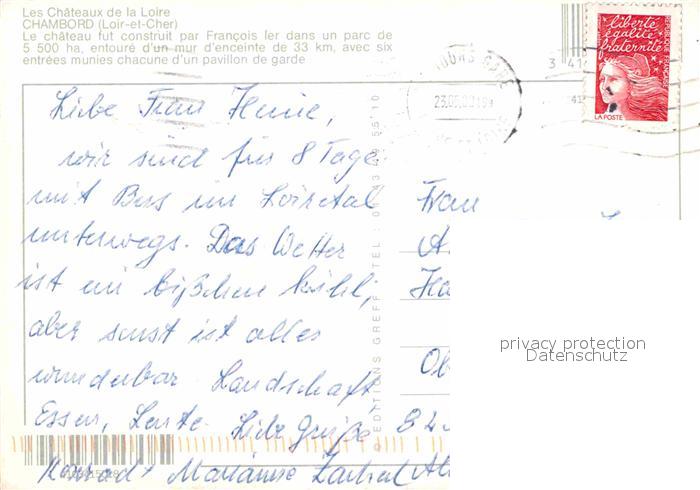 Les Châteaux de la Loire
CHAMBORD (Loir-et-Cher)
Le château fut construit par François Ier dans un parc de
5 500 ha, entouré d'un mur d'enceinte de 33 km, avec six
entrées munies chacune d'un pavillon de garde
liberté
égalité
fraternité
RÉPUBLIQUE FRANÇAISE
LA POSTE
TOURS GARE
Liebe Frau
wir sind für 8 Tage
mit Bus im Loiretal
unterwegs. Das Wetter
ist ein bißchen kühl,
aber sonst ist alles
wunderbar Landschaft
Essen, Leute. Liebe Grüße
Konrad + Marianne
Frau
A
Ha
Ob
EDITIONS GREFF TEL :
privacy protection
Datenschutz